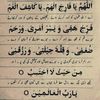 اَللّٰهُمَّ يَا فَارِجَ الْهَمِّ، يَا كَاشِفَ الْغَمِّ
فَرِّجْ هَمِّيْ وَ يَسِّرْ اَمْرِيْ، وَارْحَمْ
ضُعْفِيْ، وَ قِلَّةَ حِيْلَتِيْ، وَارْزُقْنِيْ
مِنْ حَيْثُ لَا اَحْتَسِبُ
يَا رَبَّ الْعَالَمِيْنَ